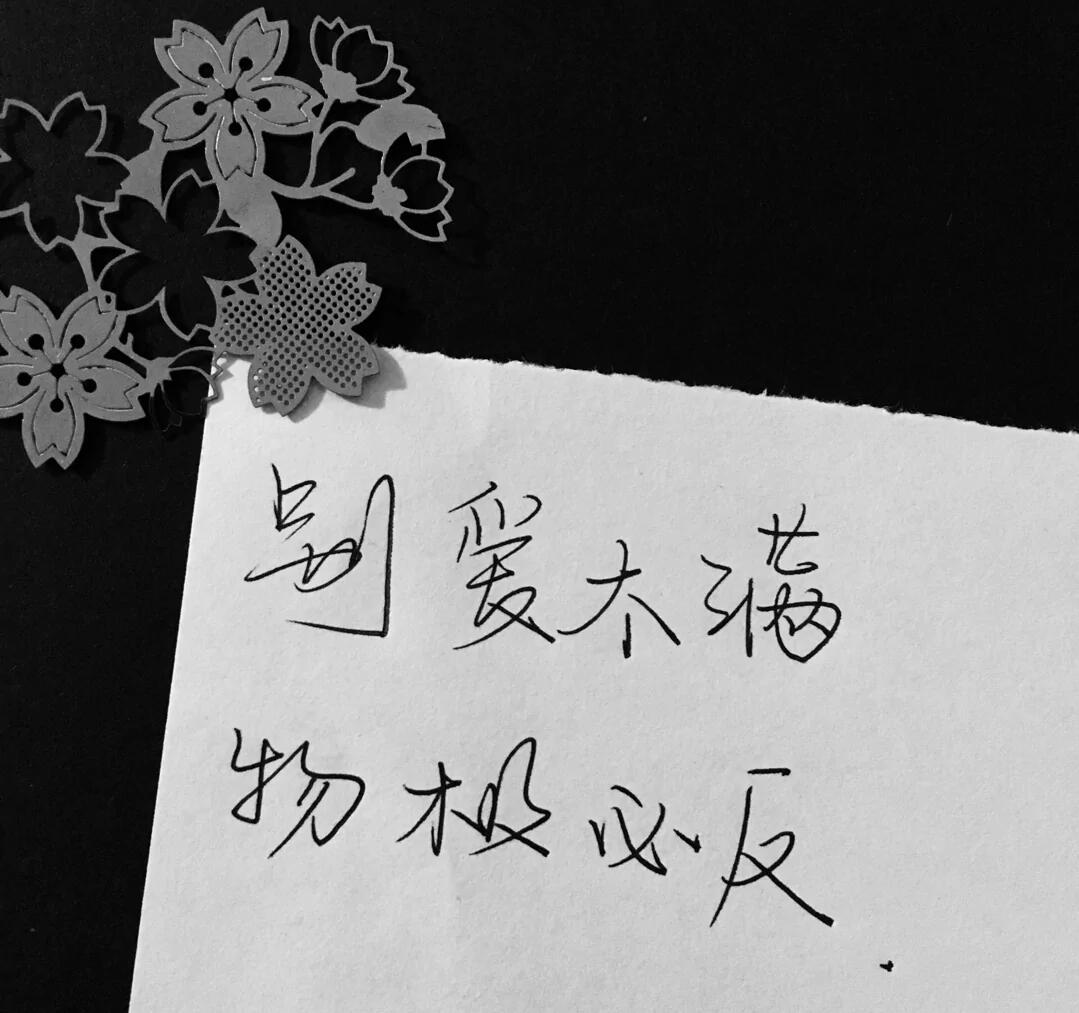 别爱太满
物极必反.